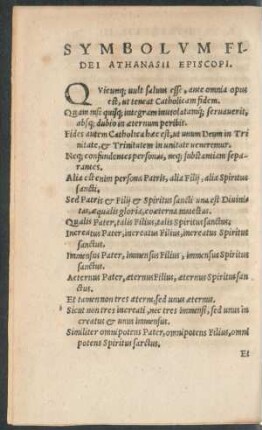 SYMBOLVM FI-
DEI ATHANASII EPISCOPI.
QVicunq; uult saluus esse, ante omnia opus
est, ut teneat Catholicam fidem.
Quam nisi quisq; integram inuiolatamq; seruauerit,
absq; dubio in aeternum peribit.
Fides autem Catholica haec est, ut unum Deum in Tri
nitate, & Trinitatem in unitate ueneremur.
Neq; confundentes personas, neq; substantiam sepa-
rantes.
Alia est enim persona Patris, alia Filij, alia Spiritus
sancti.
Sed Patris & Filij & Spiritus sancti una est Diuini
tas, aequalis gloria, coaeterna maiestas.
Qualis Pater, talis Filius, talis Spiritus sanctus.
Increatus Pater, increatus Filius, increatus Spiritus
sanctus.
Immensus Pater, immensus Filius, immensus Spiritus
sanctus.
Aeternus Pater, aeternus Filius, aeternus Spiritus san
ctus.
Et tamen non tres aeterni, sed unus aeternus.
Sicut non tres increati, nec tres immensi, sed unus in
creatus & unus immensus.
Similiter omnipotens Pater, omnipotens Filius, omni
potens Spiritus sanctus.
Et